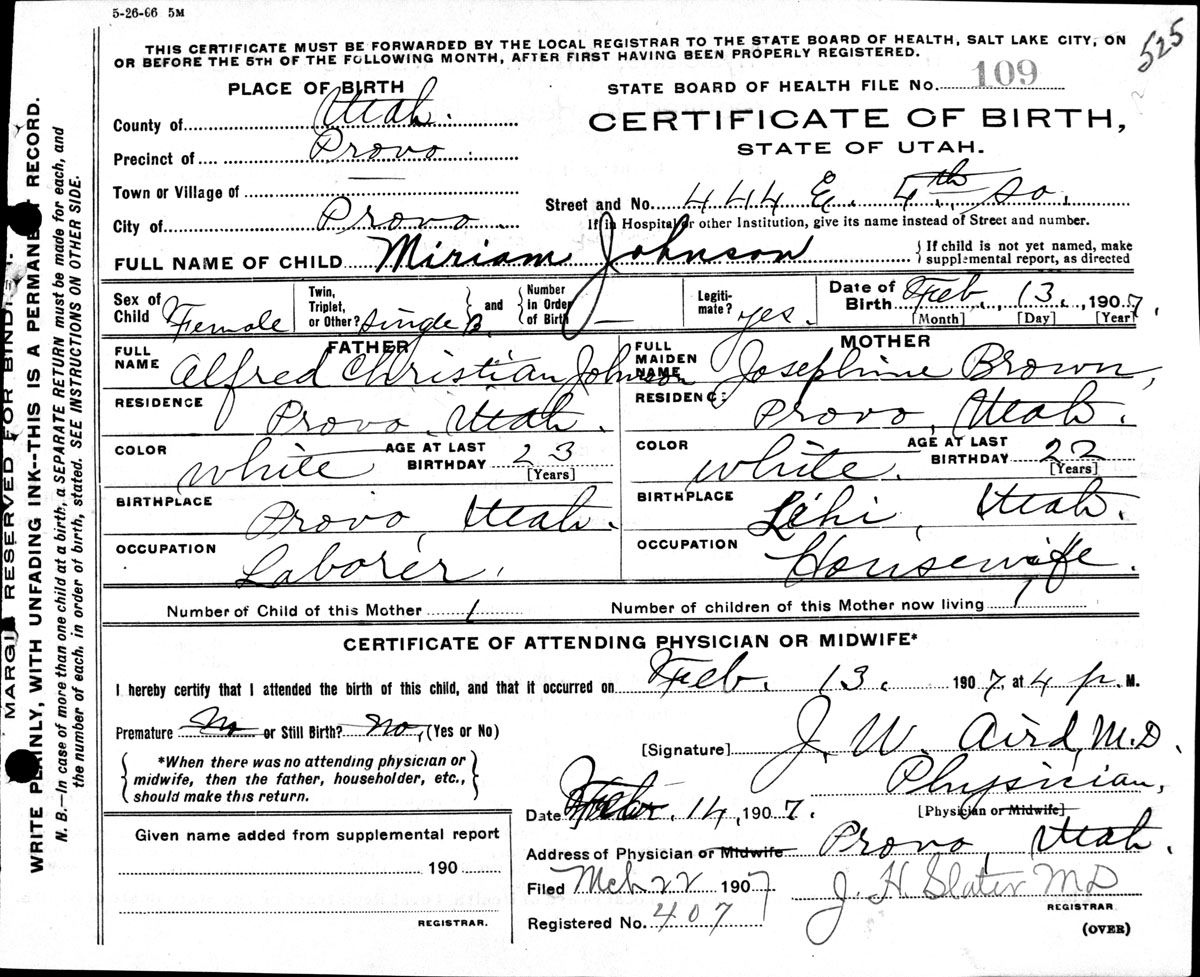 5-26-66 5M
525
THIS CERTIFICATE MUST BE FORWARDED BY THE LOCAL REGISTRAR TO THE STATE BOARD OF HEALTH, SALT LAKE CITY, ON
OR BEFORE THE 5TH OF THE FOLLOWING MONTH, AFTER FIRST HAVING BEEN PROPERLY REGISTERED.
PLACE OF BIRTH
STATE BOARD OF HEALTH FILE NO. 109
County of Utah.
CERTIFICATE OF BIRTH,
STATE OF UTAH.
Precinct of Provo
Town or Village of
Street and No. 444 E. 4th So.
City of Provo.
If in Hospital or other Institution, give its name instead of Street and number.
FULL NAME OF CHILD Miriam Johnson
If child is not yet named, make
supplemental report, as directed
Sex of Child Female
Twin, Triplet, or Other? Single B. and Number in Order of Birth —
Legiti-mate? yes.
Date of Birth Feb. 13., 1907.
[Month] [Day] [Year]
FATHER
MOTHER
FULL NAME Alfred Christian Johnson
FULL MAIDEN NAME Josephine Brown,
RESIDENCE Provo, Utah.
RESIDENCE Provo, Utah.
COLOR White AGE AT LAST BIRTHDAY 23 [Years]
COLOR White. AGE AT LAST BIRTHDAY 22 [Years]
BIRTHPLACE Provo, Utah.
BIRTHPLACE Lehi, Utah.
OCCUPATION Laborer.
OCCUPATION Housewife.
Number of Child of this Mother 1
Number of children of this Mother now living 1
CERTIFICATE OF ATTENDING PHYSICIAN OR MIDWIFE*
I hereby certify that I attended the birth of this child, and that it occurred on Feb. 13. 1907, at 4 p. M.
Premature No or Still Birth? No, (Yes or No)
[Signature] J. W. Aird, M.D.
*When there was no attending physician or
midwife, then the father, householder, etc.,
should make this return.
Physician,
[Physician or Midwife]
Date Feb. 14, 1907.
Address of Physician or Midwife Provo, Utah.
Filed Mch 22 1907
J. H Slater MD
REGISTRAR
Registered No. 407
(OVER)
Given name added from supplemental report
190
REGISTRAR.
WRITE PLAINLY, WITH UNFADING INK--THIS IS A PERMANENT RECORD.
N. B.—In case of more than one child at a birth, a SEPARATE RETURN must be made for each, and
the number of each, in order of birth, stated. SEE INSTRUCTIONS ON OTHER SIDE.